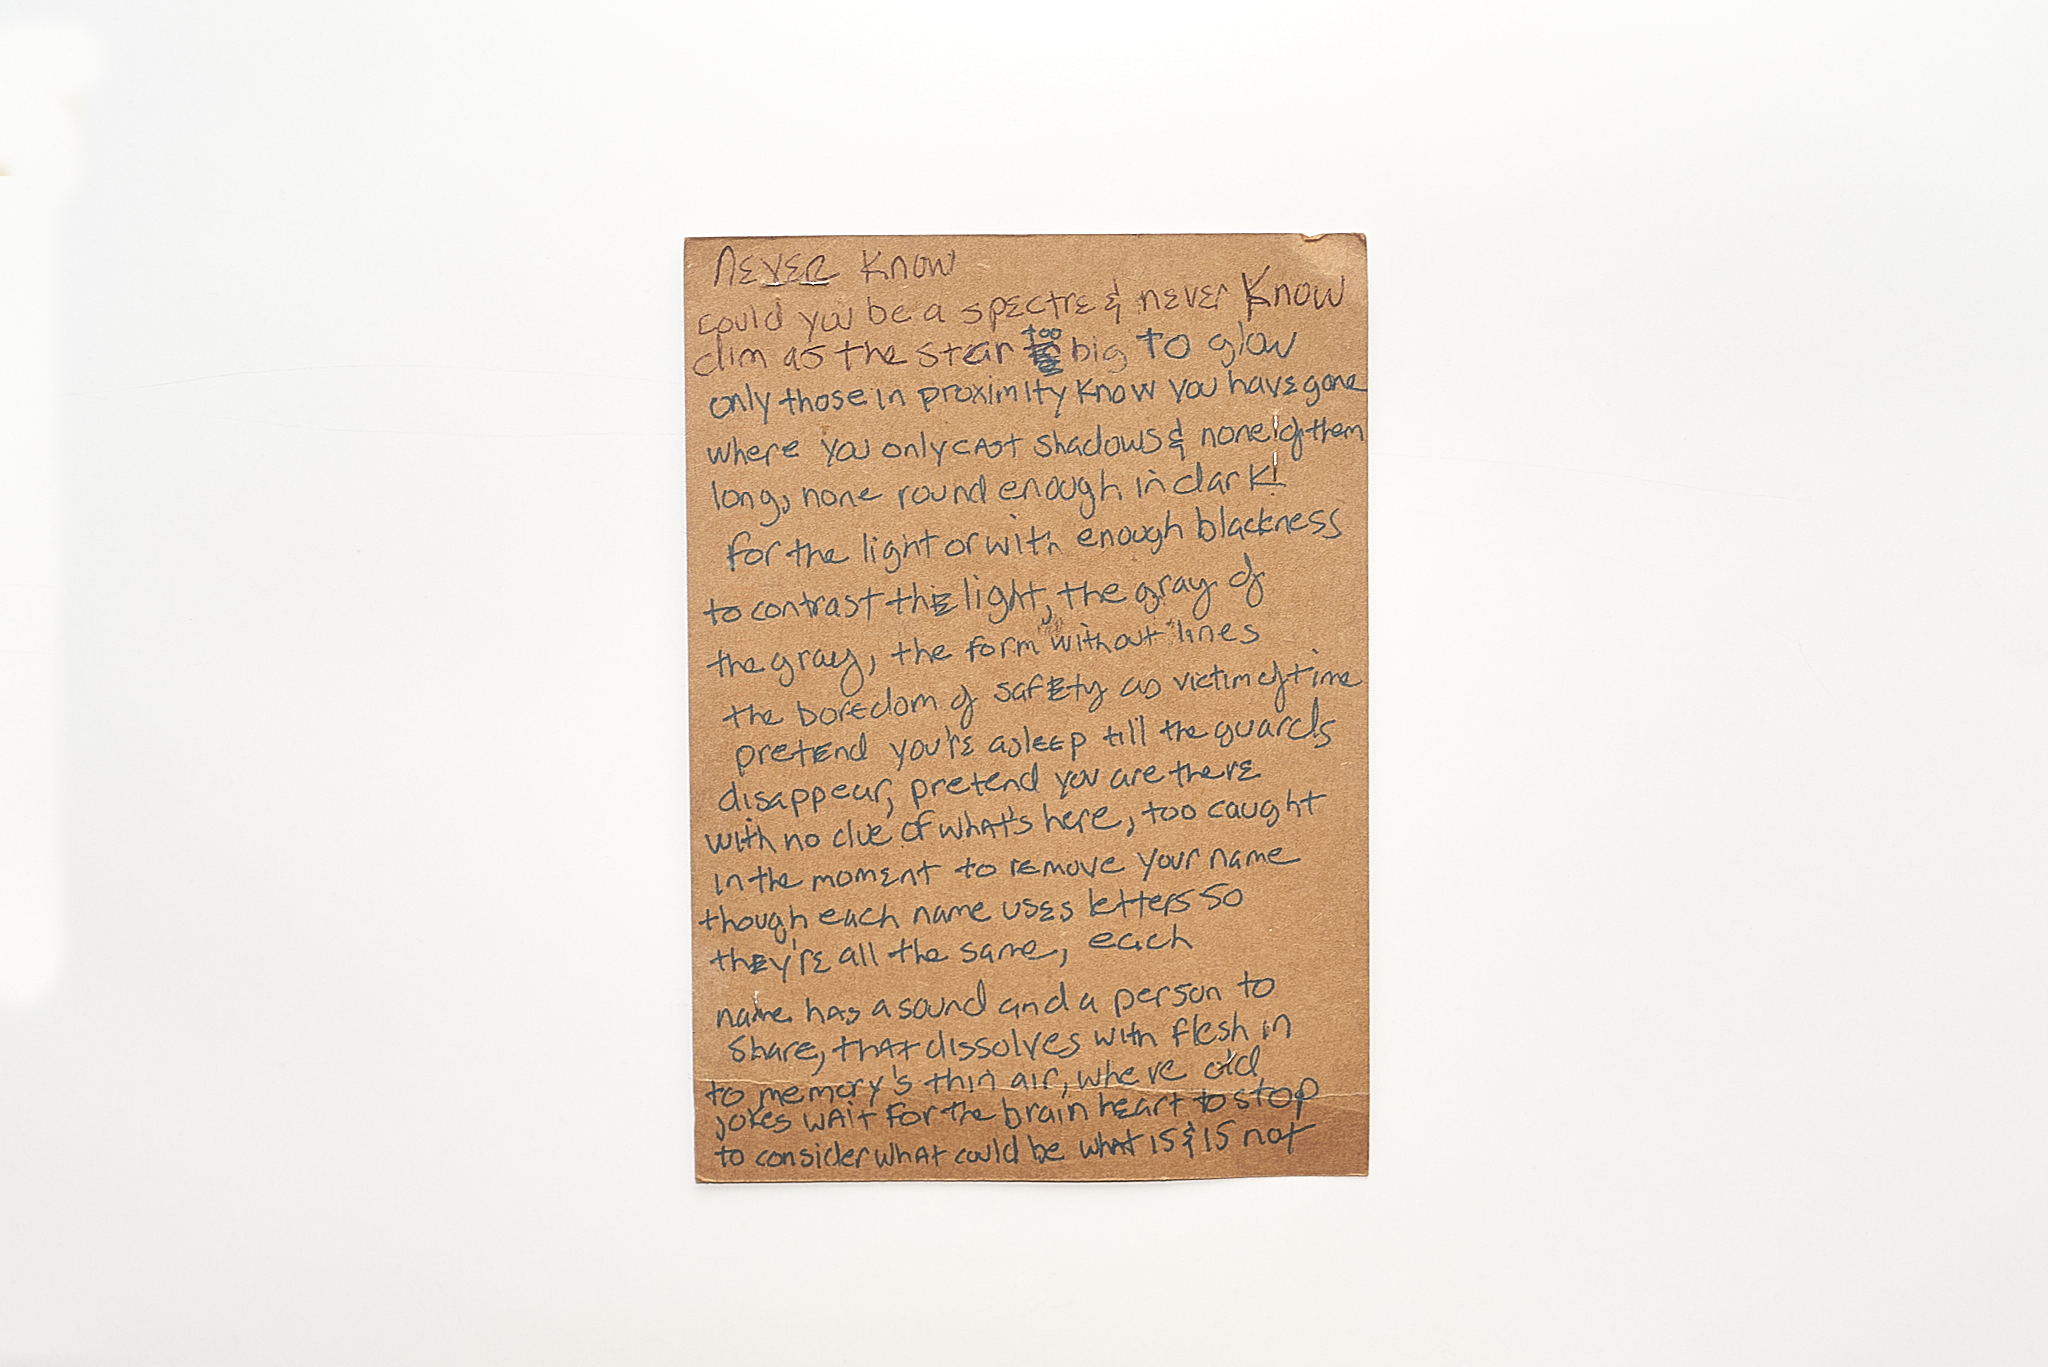 NEVER KNOW
could you be a spectre & never know
dim as the star too big to glow
only those in proximity know you have gone
where you only cast shadows & none of them
long, none round enough in dark
for the light or with enough blackness
to contrast the light, the gray of
the gray, the form without lines
the boredom of safety as victim of time
pretend you're asleep till the guards
disappear, pretend you are there
with no clue of what's here, too caught
in the moment to remove your name
though each name uses letters so
they're all the same, each
name has a sound and a person to
share, that dissolves with flesh in
to memory's thin air, where old
jokes wait for the brain heart to stop
to consider what could be what is & is not